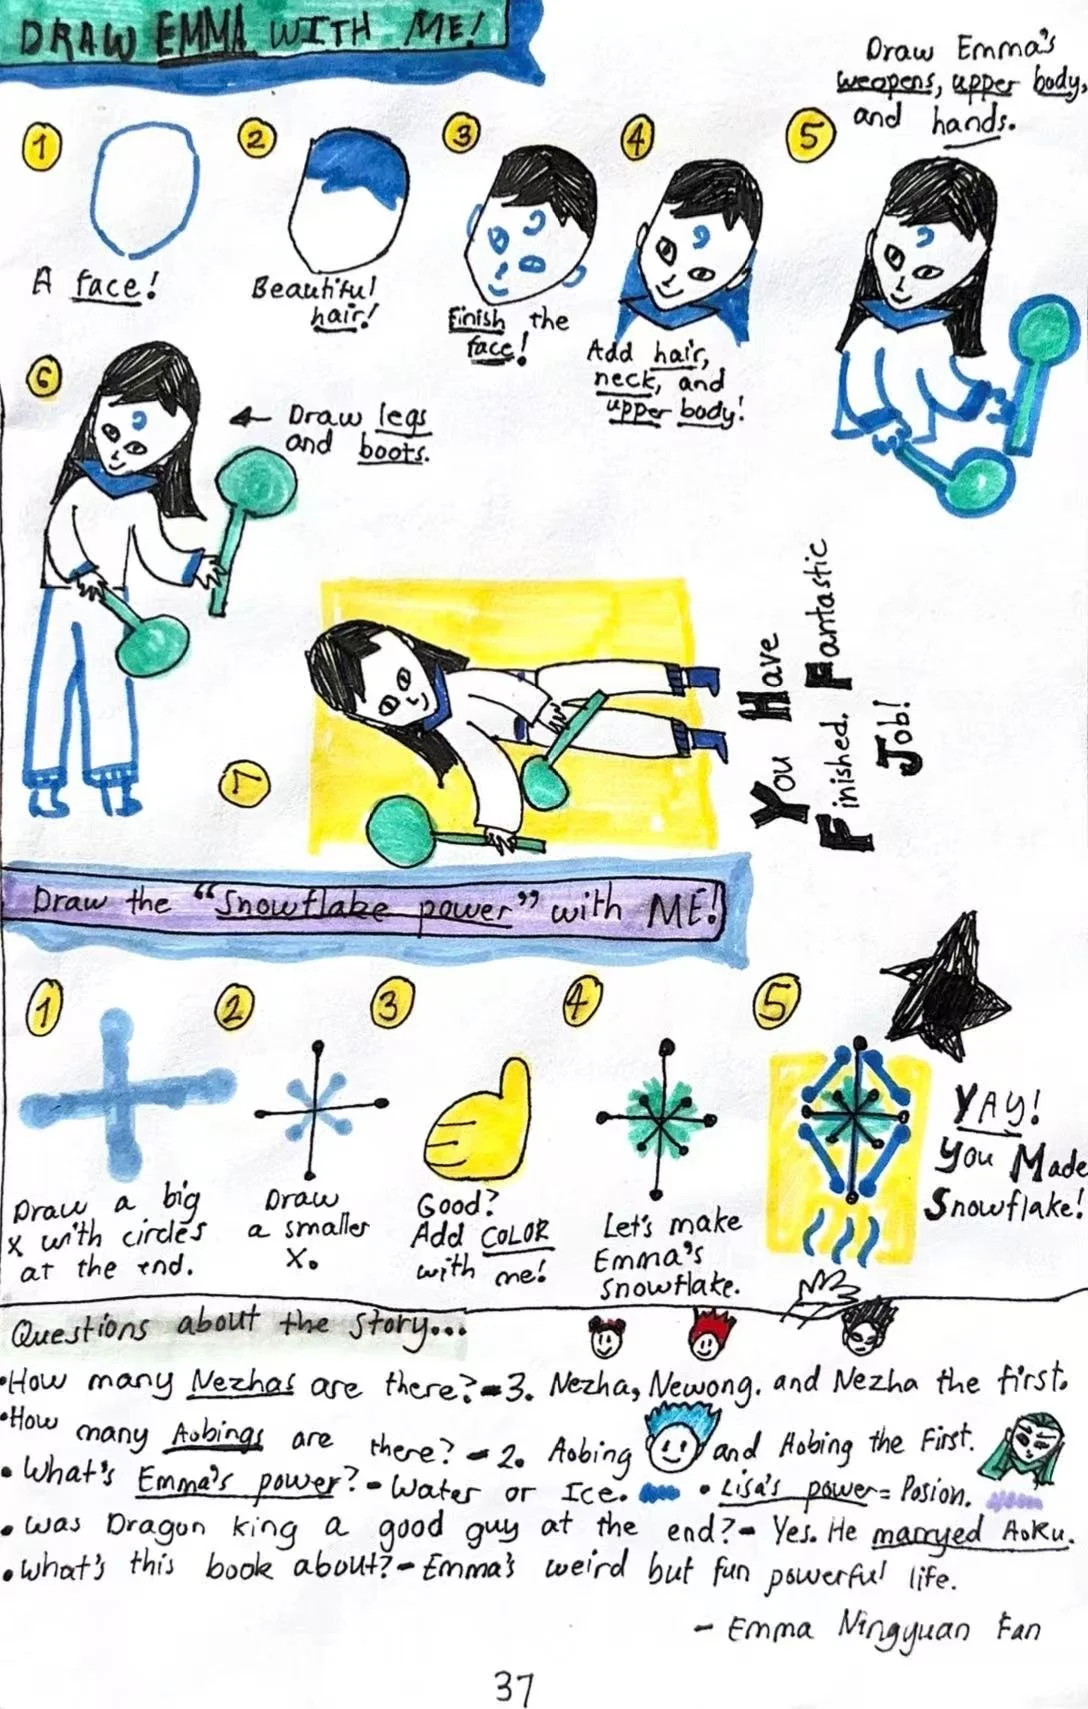 DRAW EMMA WITH ME!
1
A face!
2
Beautiful
hair!
3
Finish the
face!
4
Add hair,
neck, and
upper body!
5
Draw Emma's
weopens, upper body,
and hands.
6
Draw legs
and boots.
7
You Have
Finished. Fantastic
Job!
Draw the "Snowflake power" with ME!
1
Draw a big
X with circles
at the end.
2
Draw
a smaller
X.
3
Good?
Add COLOR
with me!
4
Let's make
Emma's
Snowflake.
5
YAY!
You Made
Snowflake!
Questions about the story...
•How many Nezhas are there?-3. Nezha, Newong. and Nezha the first.
•How many Aobings are there? - 2. Aobing and Aobing the First.
• What's Emma's power? - Water or Ice. • Lisa's power = Posion.
• Was Dragon king a good guy at the end?- Yes. He marryed Aoku.
• What's this book about?- Emma's weird but fun powerful life.
- Emma Ningyuan Fan
37